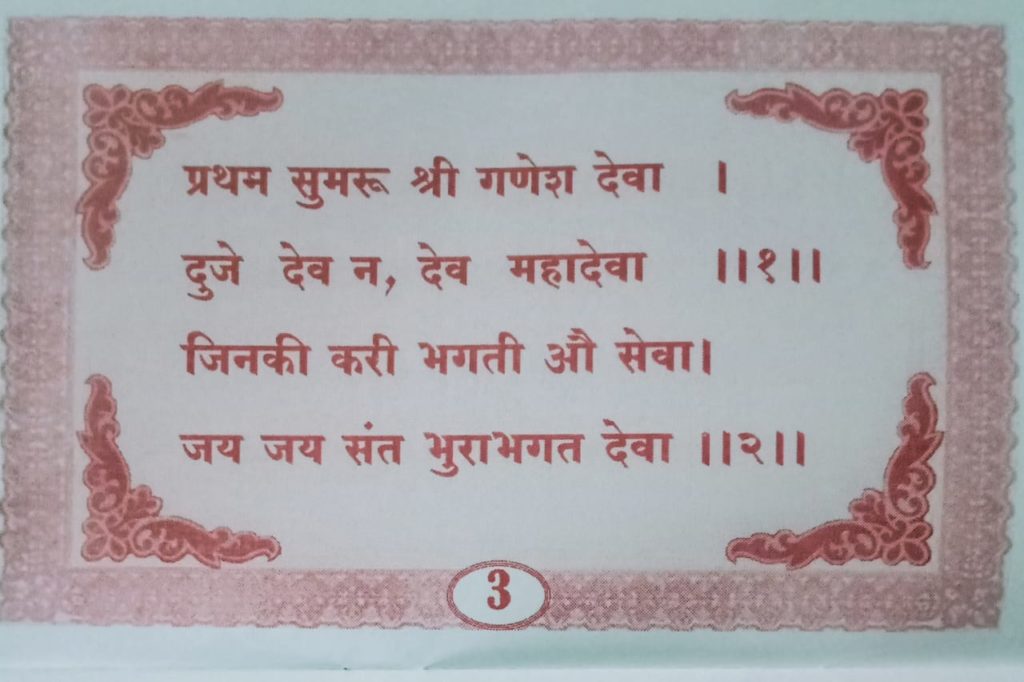 प्रथम सुमरू श्री गणेश देवा ।
दुजे देव न, देव महादेवा ।।१।।
जिनकी करी भगती औ सेवा।
जय जय संत भुराभगत देवा ।।२।।
3